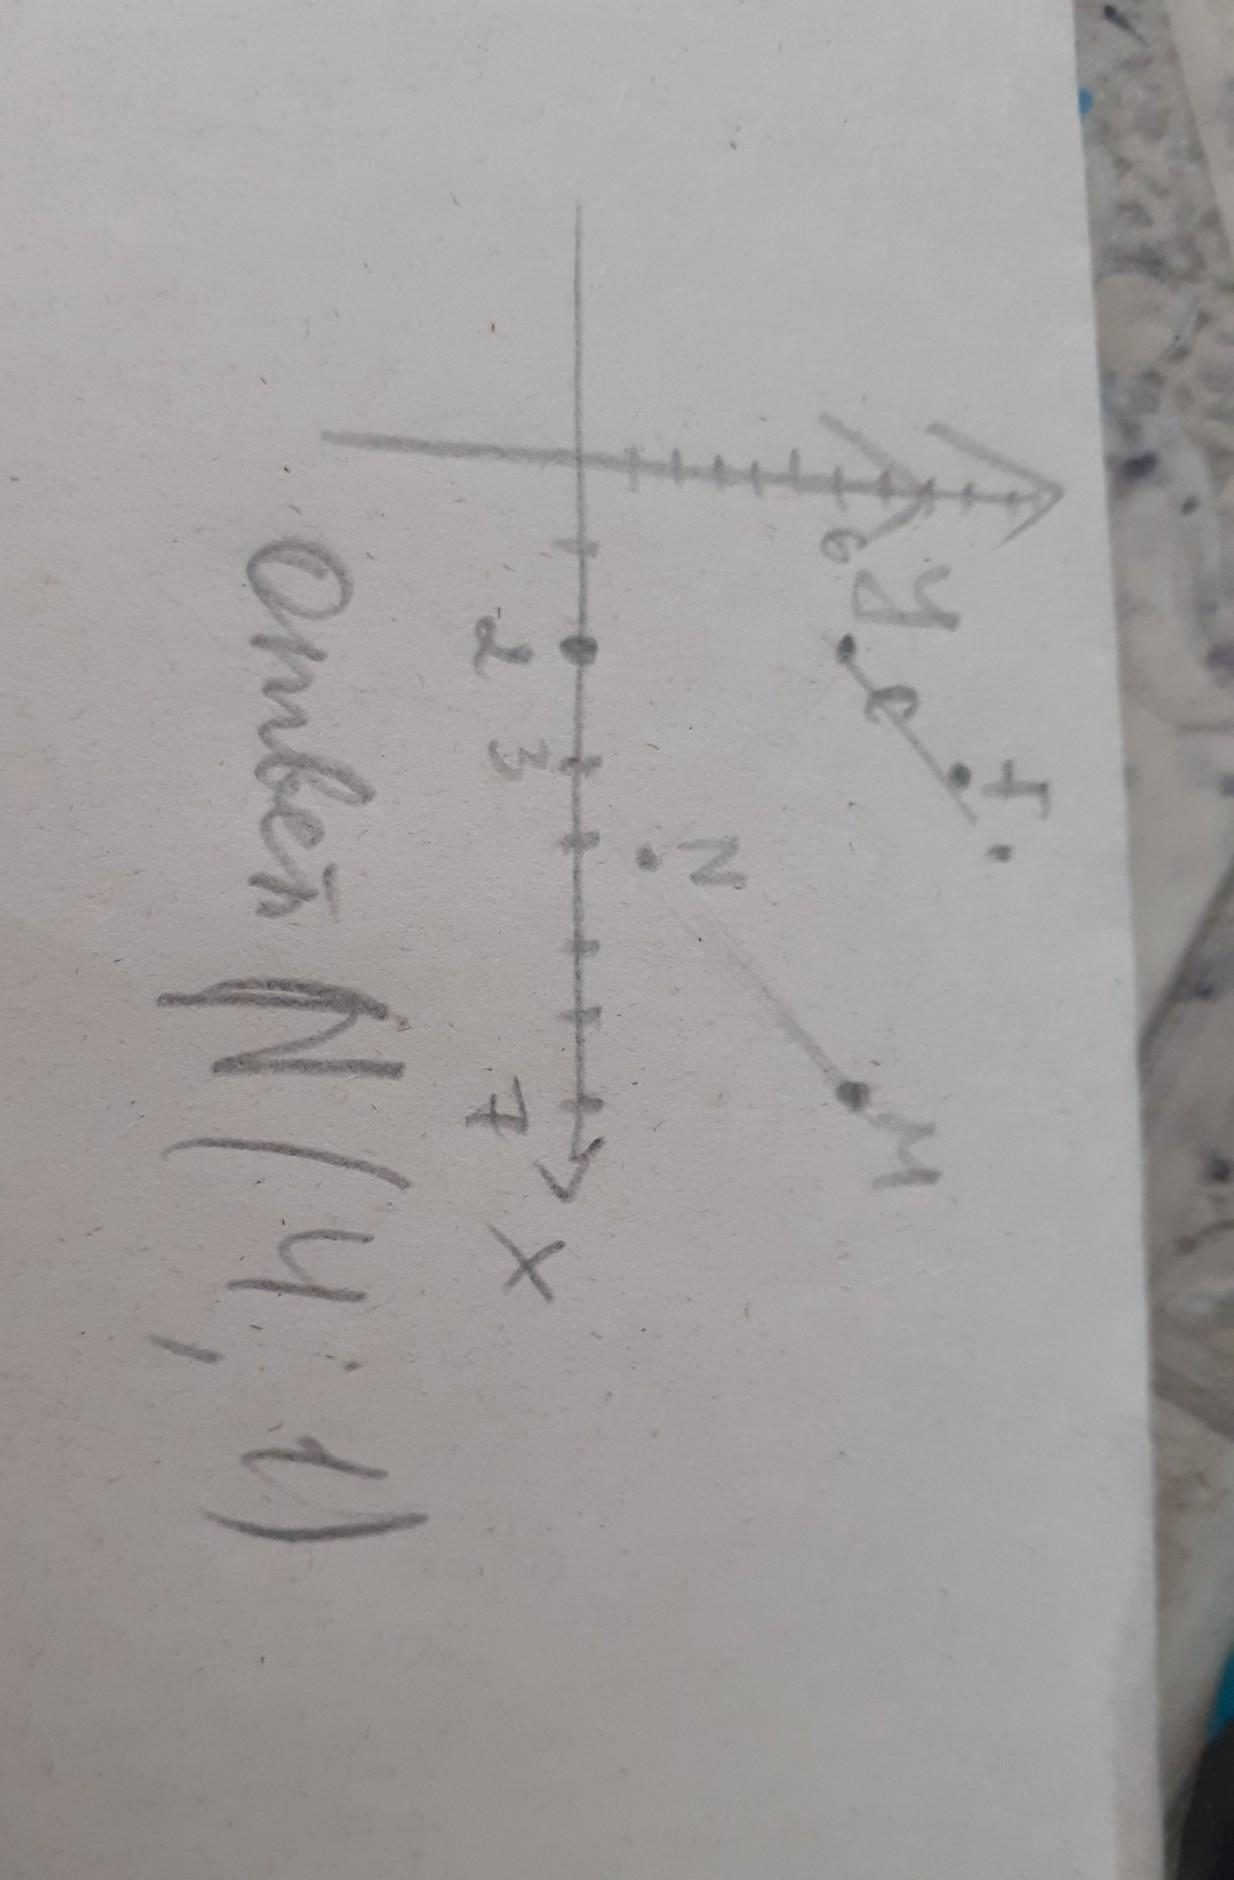 y
F
C
6
M
N
2 3 7
x
Ответ N(4; 1)